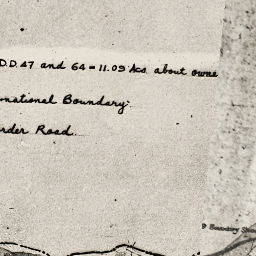 D.D. 47 and 64 = 11.09 Acs. about owne
national Boundary.
rder Road.
9 Boundary